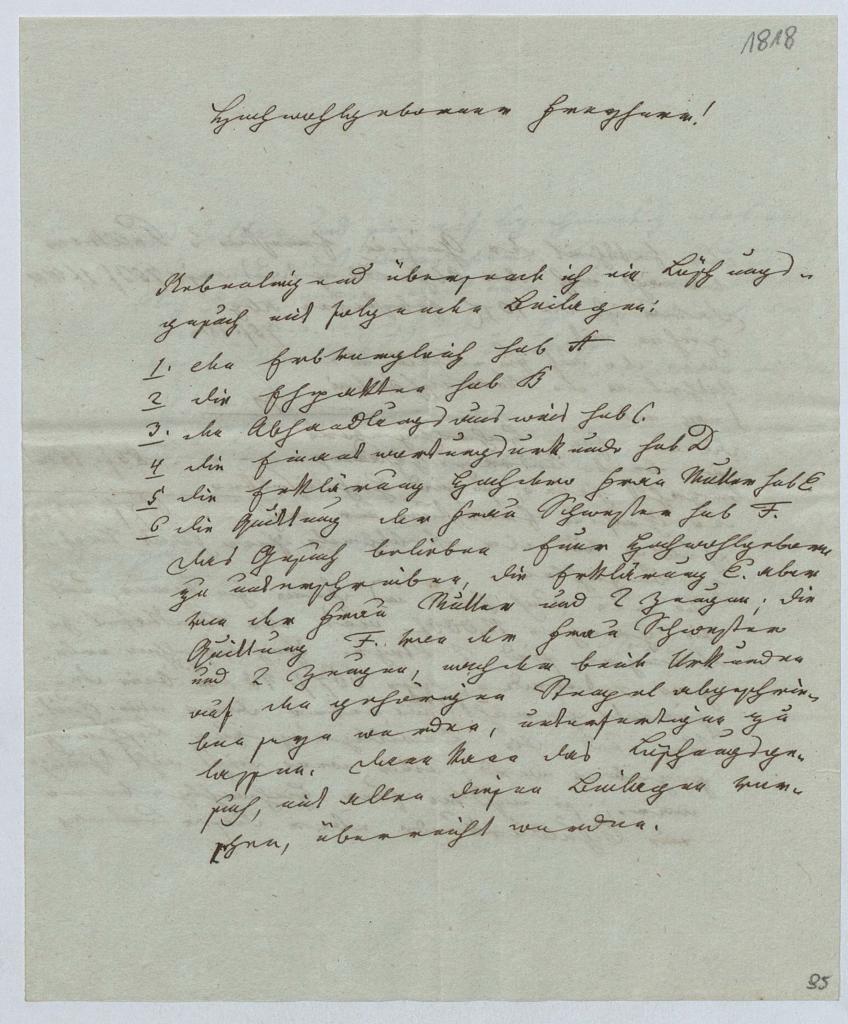 1818
Hochwohlgeborner Freyherr!
Nebenliegend übersende ich ein Löschungs-
gesuch mit folgenden Beilagen:
1. den Erbvergleich sub A
2 die Ehpakten sub B
3. den Abhandlungsausweis sub C.
4 die Einantwortungsurkunde sub D
5 die Erklärung Hochdero Frau Mutter sub E
6 die Quittung der Frau Schwester sub F.
Das Gesuch belieben Euer Hochwohlgeborn
zu unterschreiben, die Erklärung E. aber
von der Frau Mutter und 2 Zeugen; die
Quittung F. von der Frau Schwester
und 2 Zeugen, nachdem beide Urkunden
auf den gehörigen Stempel abgeschrie-
ben seyn werden, unterfertigen zu
lassen. Dann kann das Löschungsge-
such, mit allen diesen Beilagen ver-
sehen, überreicht werden.
35